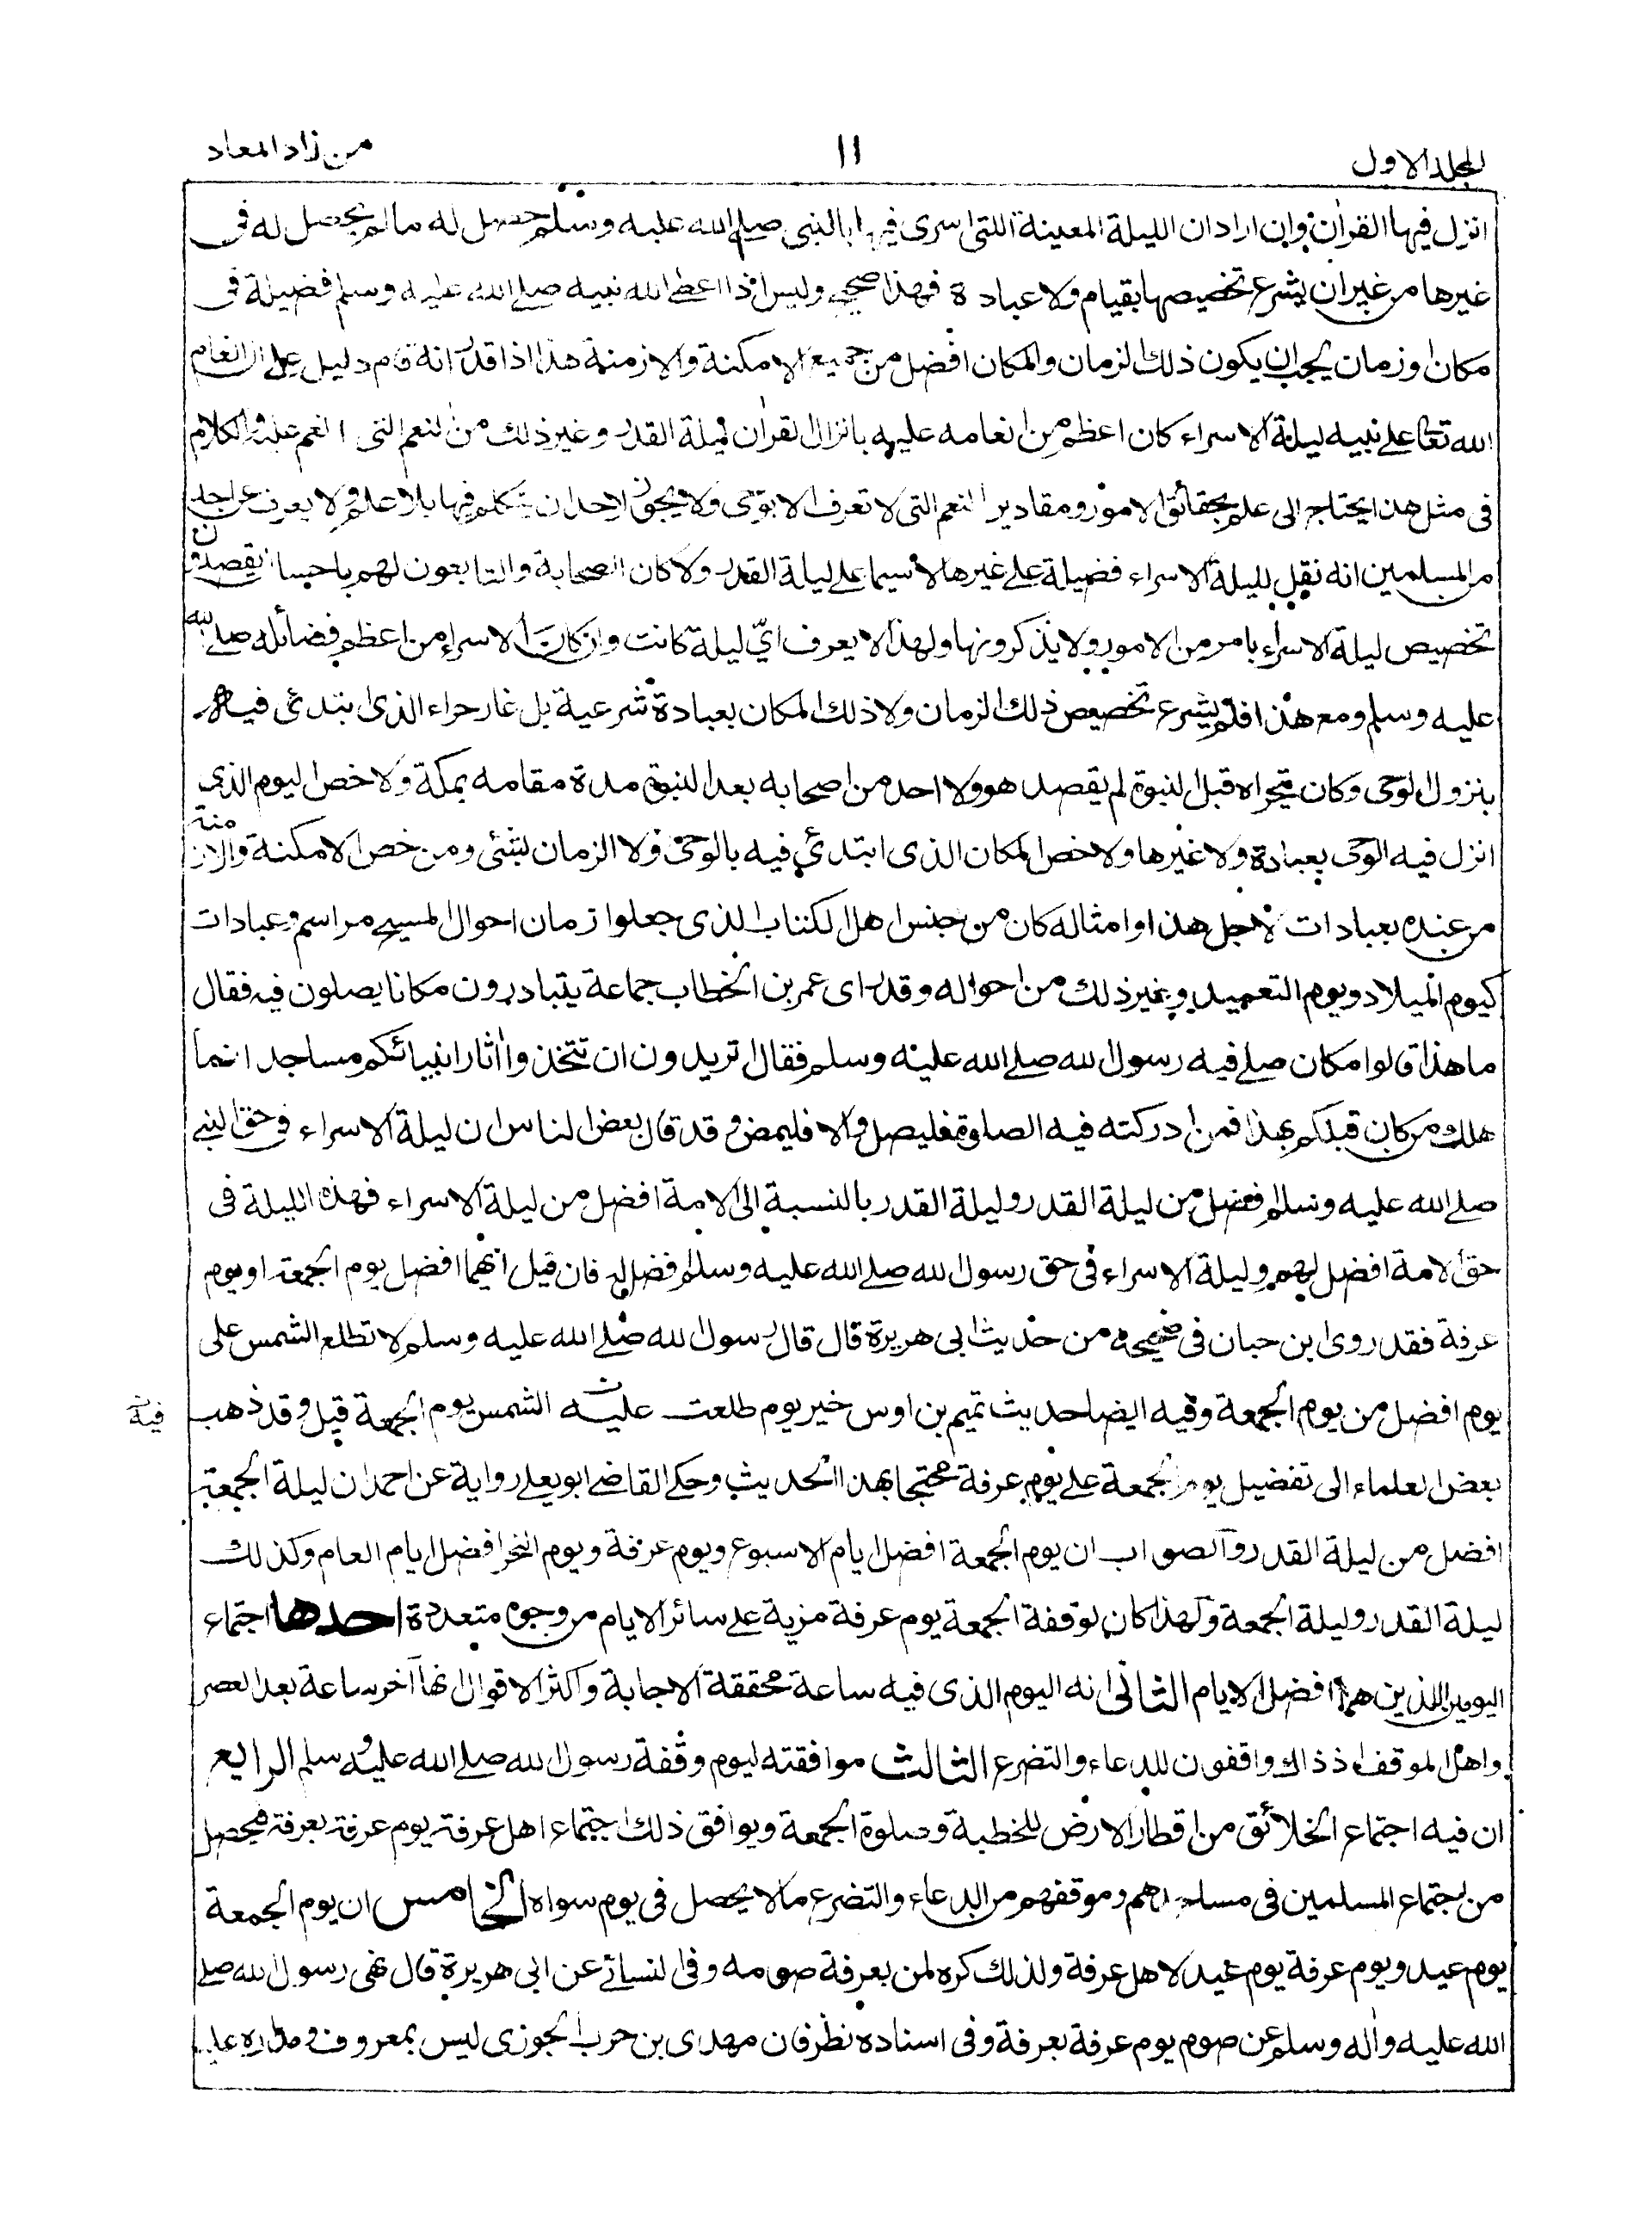 المجلد الاول
١١
من زاد المعاد
انزل فيها القران وان اراد ان الليلة المعينة اللتى اسرى فيها بالنبى صلے الله عليه وسلم حصل له مالم يحصل له فى
غيرها من غير ان يشرع تخصيصها بقيام ولا عبادة فهذا صحيح وليس اذا اعطے الله نبيه صلے الله عليه وسلم فضيلة فى
مكان او زمان يجب ان يكون ذلك الزمان والمكان افضل من جميع الامكنة والازمنة هذا اذا قدر انه قام دليل على ان انعام
الله تعا على نبيه ليلة الاسراء كان اعظم من انعامه عليه بانزال القران ليلة القدر وغير ذلك من النعم التى انعم عليه والكلام
فى مثل هذا يحتاج الى علم بحقائق الامور ومقادير النعم التى لا تعرف الا بوحى ولا يجوز لاحد ان يتكلم فيها بلا علم ولا يعرف عن احد
من المسلمين انه نقل لليلة الاسراء فضيلة على غيرها لاسيما على ليلة القدر ولا كان الصحابة والتابعون لهم باحسان يقصدون
تخصيص ليلة الاسراء بامر من الامور ولا يذكرونها ولهذا لا يعرف اىّ ليلة كانت وان كان الاسراء من اعظم فضائله صلے الله
عليه وسلم ومع هذا فلم يشرع تخصيص ذلك الزمان ولا ذلك المكان بعبادة شرعية بل غار حراء الذى ابتدئ فيه
بنزول الوحى وكان يتحراه قبل النبوة لم يقصده هو ولا احد من اصحابه بعد النبوة مدة مقامه بمكة ولا خص اليوم الذى
انزل فيه الوحى بعبادة ولا غيرها ولا خص المكان الذى ابتدئ فيه بالوحى ولا الزمان بشئ ومن خص الامكنة والازمنة
من عنده بعبادات لاجل هذا وامثاله كان من جنس اهل الكتاب الذى جعلوا زمان احوال المسيح مراسم وعبادات
كيوم الميلاد ويوم التعميد وغير ذلك من احواله وقد راى عمر بن الخطاب جماعة يتبادرون مكانا يصلون فيه فقال
ما هذا قالوا مكان صلے فيه رسول الله صلے الله عليه وسلم فقال اتريدون ان تتخذوا اثار انبيائكم مساجد انما
هلك من كان قبلكم بهذا فمن ادركته فيه الصلوة فليصل والا فليمض وقد قال بعض الناس ان ليلة الاسراء فى حق النبے
صلے الله عليه وسلم افضل من ليلة القدر وليلة القدر بالنسبة الى الامة افضل من ليلة الاسراء فهذه الليلة فى
حق الامة افضل لهم وليلة الاسراء فى حق رسول الله صلے الله عليه وسلم افضل له فان قيل ايهما افضل يوم الجمعة او يوم
عرفة فقد روى ابن حبان فى صحيحه من حديث ابى هريرة قال قال رسول الله صلے الله عليه وسلم لا تطلع الشمس على
يوم افضل من يوم الجمعة وفيه ايضا حديث تميم بن اوس خير يوم طلعت عليه الشمس يوم الجمعة قيل وقد ذهب
فيه
بعض العلماء الى تفضيل يوم الجمعة على يوم عرفة محتجا بهذا الحديث وحكى القاضے ابو يعلے رواية عن احمد ان ليلة الجمعة
افضل من ليلة القدر والصواب ان يوم الجمعة افضل ايام الاسبوع ويوم عرفة ويوم النحر افضل ايام العام وكذلك
ليلة القدر وليلة الجمعة ولهذا كان لوقفة الجمعة يوم عرفة مزية على سائر الايام من وجوه متعددة احدها اجتماع
اليومين اللذين هما افضل الايام الثانى انه اليوم الذى فيه ساعة محققة الاجابة واكثر الاقوال انها آخر ساعة بعد العصر
واهل الموقف اذ ذاك واقفون للدعاء والتضرع الثالث موافقته ليوم وقفة رسول الله صلے الله عليه وسلم الرابع
ان فيه اجتماع الخلائق من اقطار الارض للخطبة وصلوة الجمعة ويوافق ذلك اجتماع اهل عرفة يوم عرفة بعرفة فيحصل
من اجتماع المسلمين فى مساجدهم وموقفهم من الدعاء والتضرع مالا يحصل فى يوم سواه الخامس ان يوم الجمعة
يوم عيد ويوم عرفة يوم عيد لاهل عرفة ولذلك كره لمن بعرفة صومه وفى النسائے عن ابى هريرة قال نهى رسول الله صلے
الله عليه واله وسلم عن صوم يوم عرفة بعرفة وفى اسناده نظر فان مهدى بن حرب الجوزى ليس بمعروف ومداره عليه